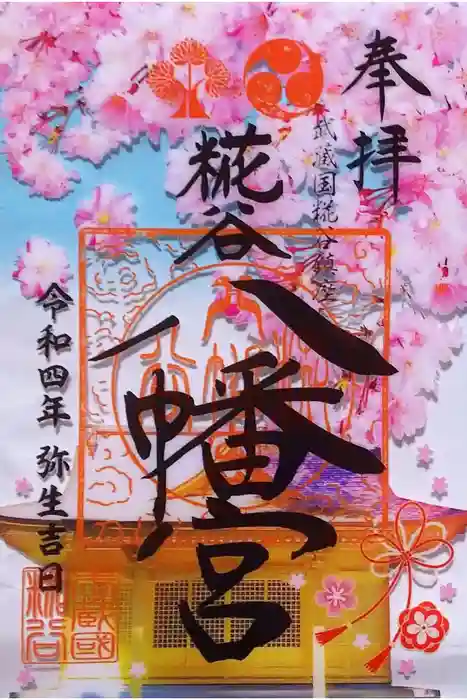 奉拝
武蔵国糀谷鎮座
糀谷
八幡宮
令和四年 弥生吉日
糀谷
武蔵国